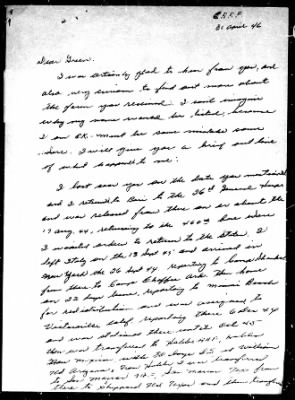 E.R.R.
21 April 46
Dear Green.
I was certainly glad to hear from you, and
also very curious to find out more about
the form you received. I can't imagine
why my name would be listed, because
I am O.K. - must be some mistake some
where. I will give you a brief outline
of what happened to me:
I last saw you on the date you mentioned
and I returned to Bari to the 26th General Hosp
and was released from there on or about the
17 Aug 44, returning to the 460th. Once there
I awaited orders to return to the States. I
left Italy on the 13 Sept 44 and arrived in
New York the 26 Sept 44 reporting to Camp
from there to Camp Chaffee Ark. then home
on 22 days leave, reporting to Miami Beach
for redistribution and was assigned to
Victorville Calif. reporting there 6 Nov 44
and was stationed there until Oct 45.
then was transferred to
New Mexico with 30 days at Williams
Fld Arizona. From I was transferred
to San Marcos Texas from
there to Sheppard Fld Texas and then